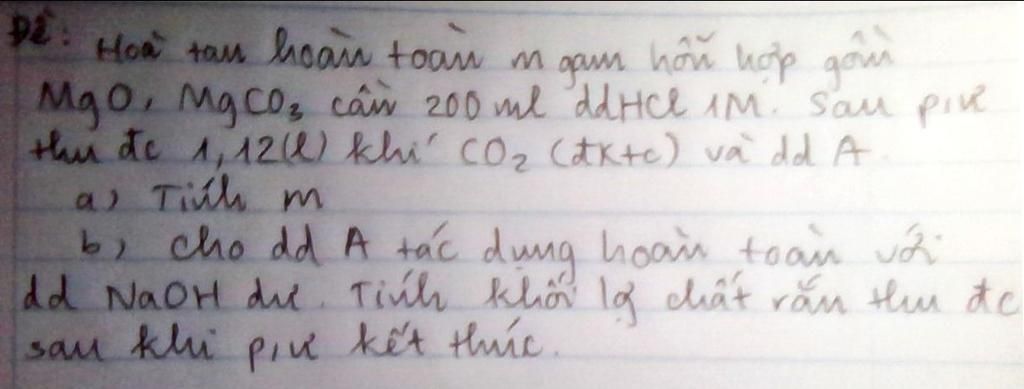 Đề: Hoà tan hoàn toàn m gam hỗn hợp gồm
MgO, MgCO3 cần 200 ml ddHCl 1M. Sau p,ư
thu đc 1,12(l) khí CO2 (đktc) và dd A.
a) Tính m
b) Cho dd A tác dụng hoàn toàn với
dd NaOH dư. Tính khối lg chất rắn thu đc
sau khi p,ư kết thúc.